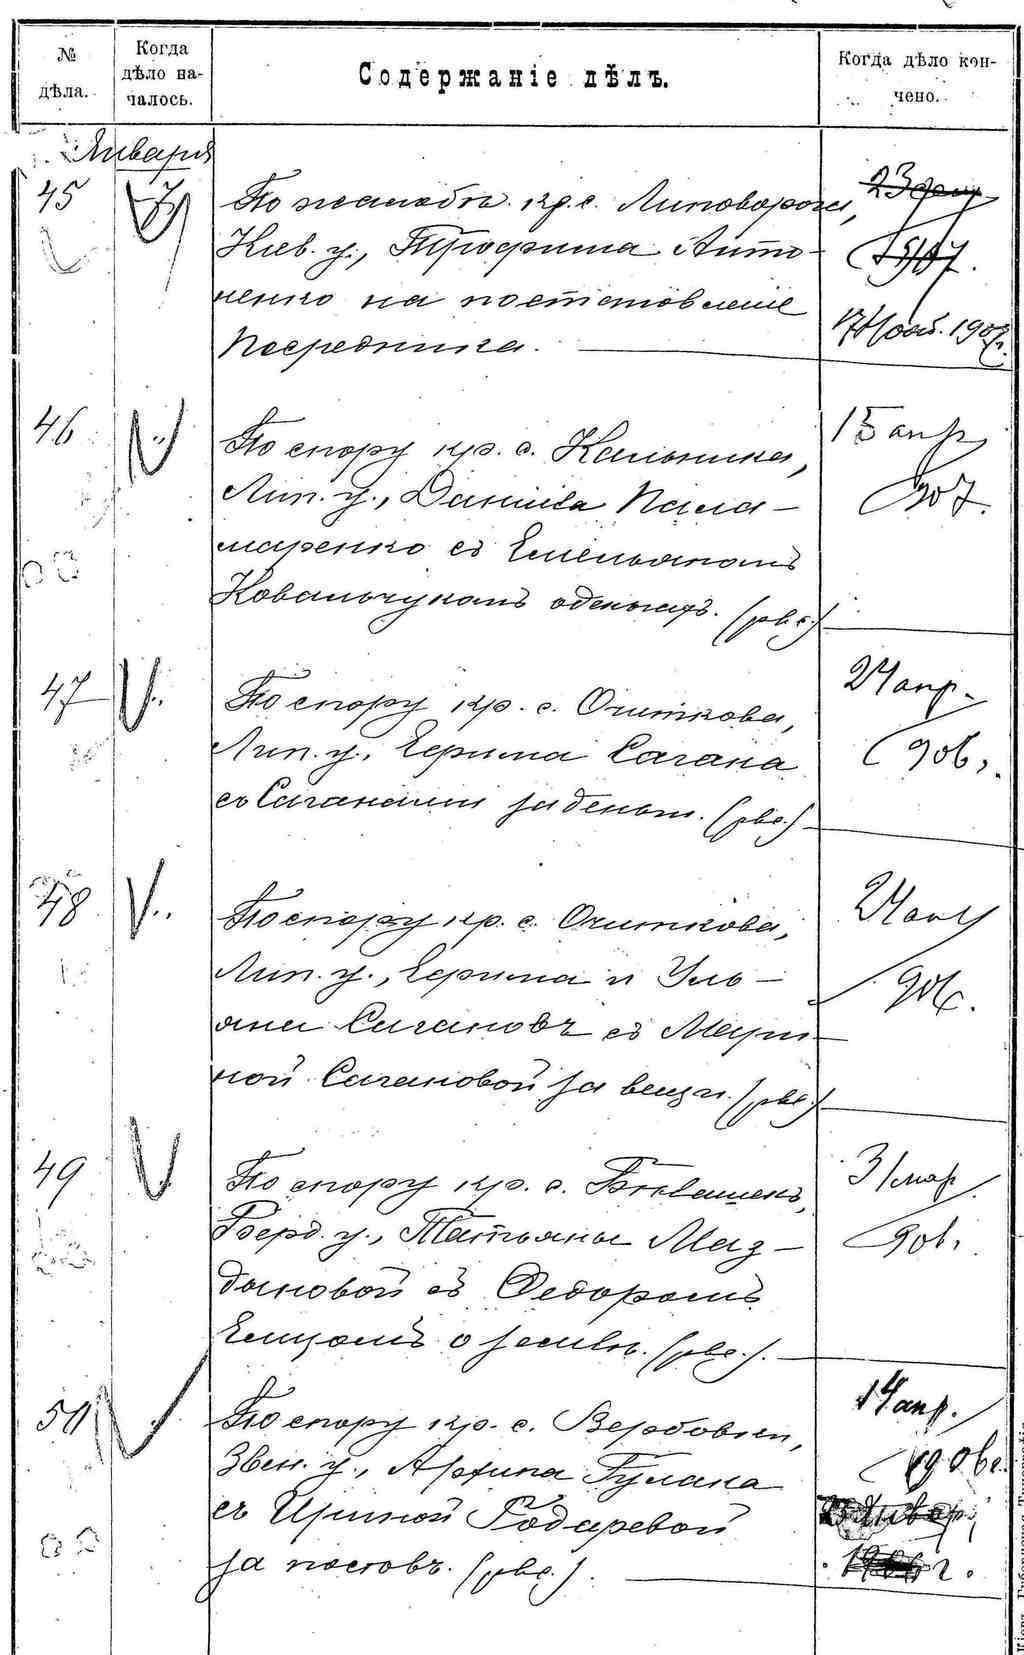 № дѣла.
Когда дѣло началось.
Содержаніе дѣлъ.
Когда дѣло кончено.
Января
45
7
По жалобѣ кр. с. Липоворожи,
Кіев. у., Трофима Анто-
ненко на постановленіе
Посредника.
17 Нояб. 190
46
"
По спору кр. с. Кальника,
Лип. у., Данила Пала-
маренко съ Емельяномъ
Ковальчукомъ о деньгахъ. (рвс.)
15 апр.
907.
47
"
По спору кр. с. Очиткова,
Лип. у., Ефима Сагана
съ Саганами за деньги. (рвс.)
24 апр.
906 г.
48
"
По спору кр. с. Очиткова,
Лип. у., Ефима и Улья-
яны Сагановъ съ Мари-
ной Сагановой за вещи. (рвс.)
24 апр
906.
49
По спору кр. с.
Берд. у., Татьяны Маз-
съ Федоромъ
о землѣ. (рвс.).
31 мар.
906.
50
"
По спору кр. с. Вербовки,
Звен. у., Архипа Гулака
съ Ириной
за постовъ. (рвс.).
14 апр.
1906 г.
Января
1906 г.